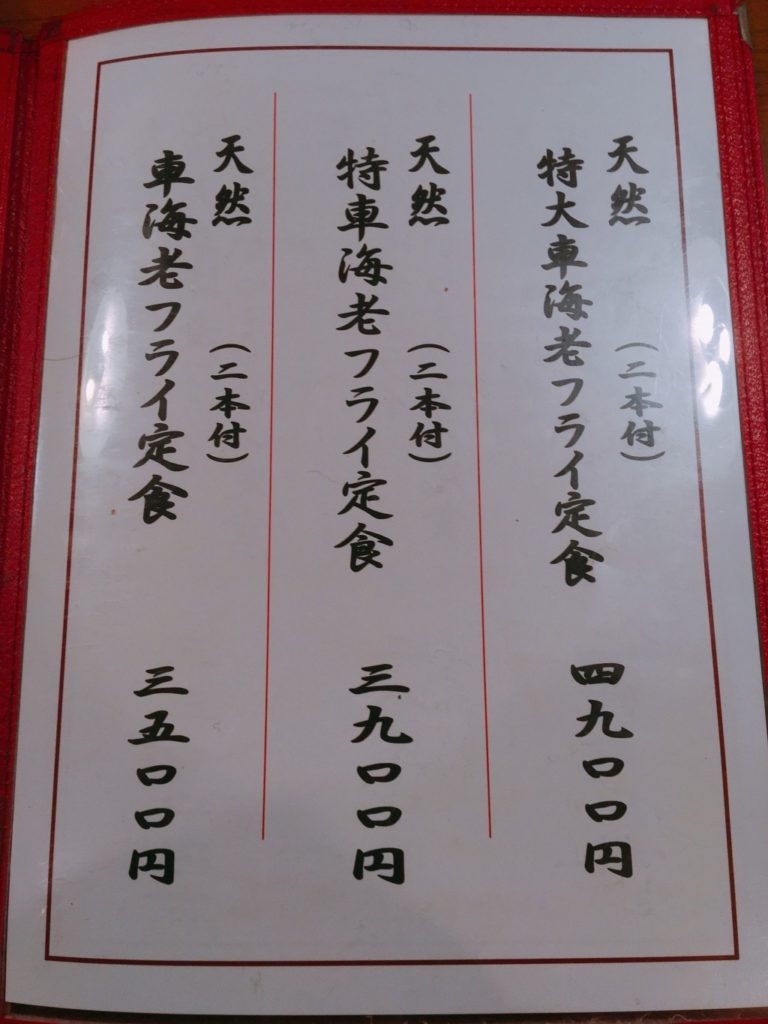 天然 (二本付)
特大車海老フライ定食 四九〇〇円
天然 (二本付)
特車海老フライ定食 三九〇〇円
天然 (二本付)
車海老フライ定食 三五〇〇円